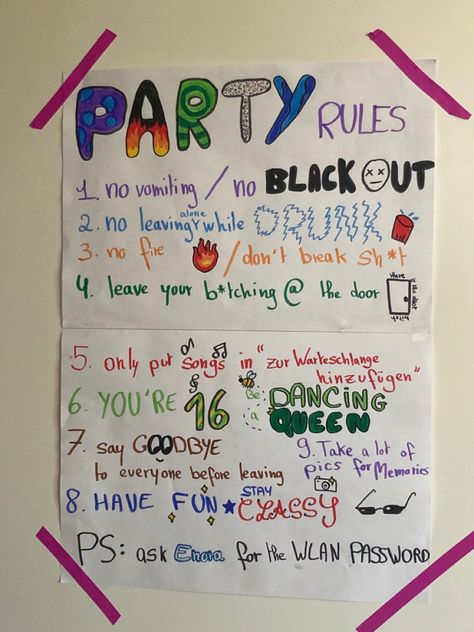 PARTY RULES
1. no vomiting / no BLACK OUT
2. no leaving alone while DRUNK
3. no fire / don't break sh*t
4. leave your b*tching @ the door
Here is the door bitch
5. only put songs in "zur Warteschlange
hinzufügen"
6. YOU'RE 16 Be a DANCING
QUEEN
7. say GOODBYE
to everyone before leaving
9. Take a lot of
pics for Memories
8. HAVE FUN STAY CLASSY
PS: ask Enora for the WLAN PASSWORD